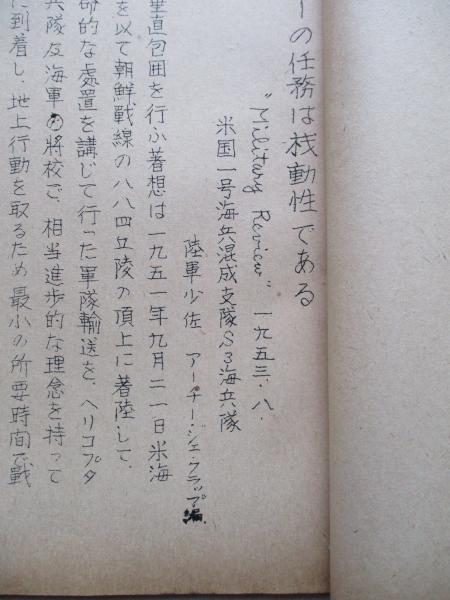 ーの任務は栈動性である
"Military Review" 一九五三・八・
米国一号海兵混成支隊S3海兵隊
陸軍少佐 アーチー・ジェ・クラップ編
垂直包囲を行ふ着想は一九五一年九月二一日米海
を以て朝鮮戦線の八八四丘陵の頂上に着陸して、
命的な處置を講じて行った軍隊輸送を、ヘリコプタ
兵隊及海軍の將校で、相当進歩的な理念を持って
に到着し、地上行動を取るため最小の所要時間で戰